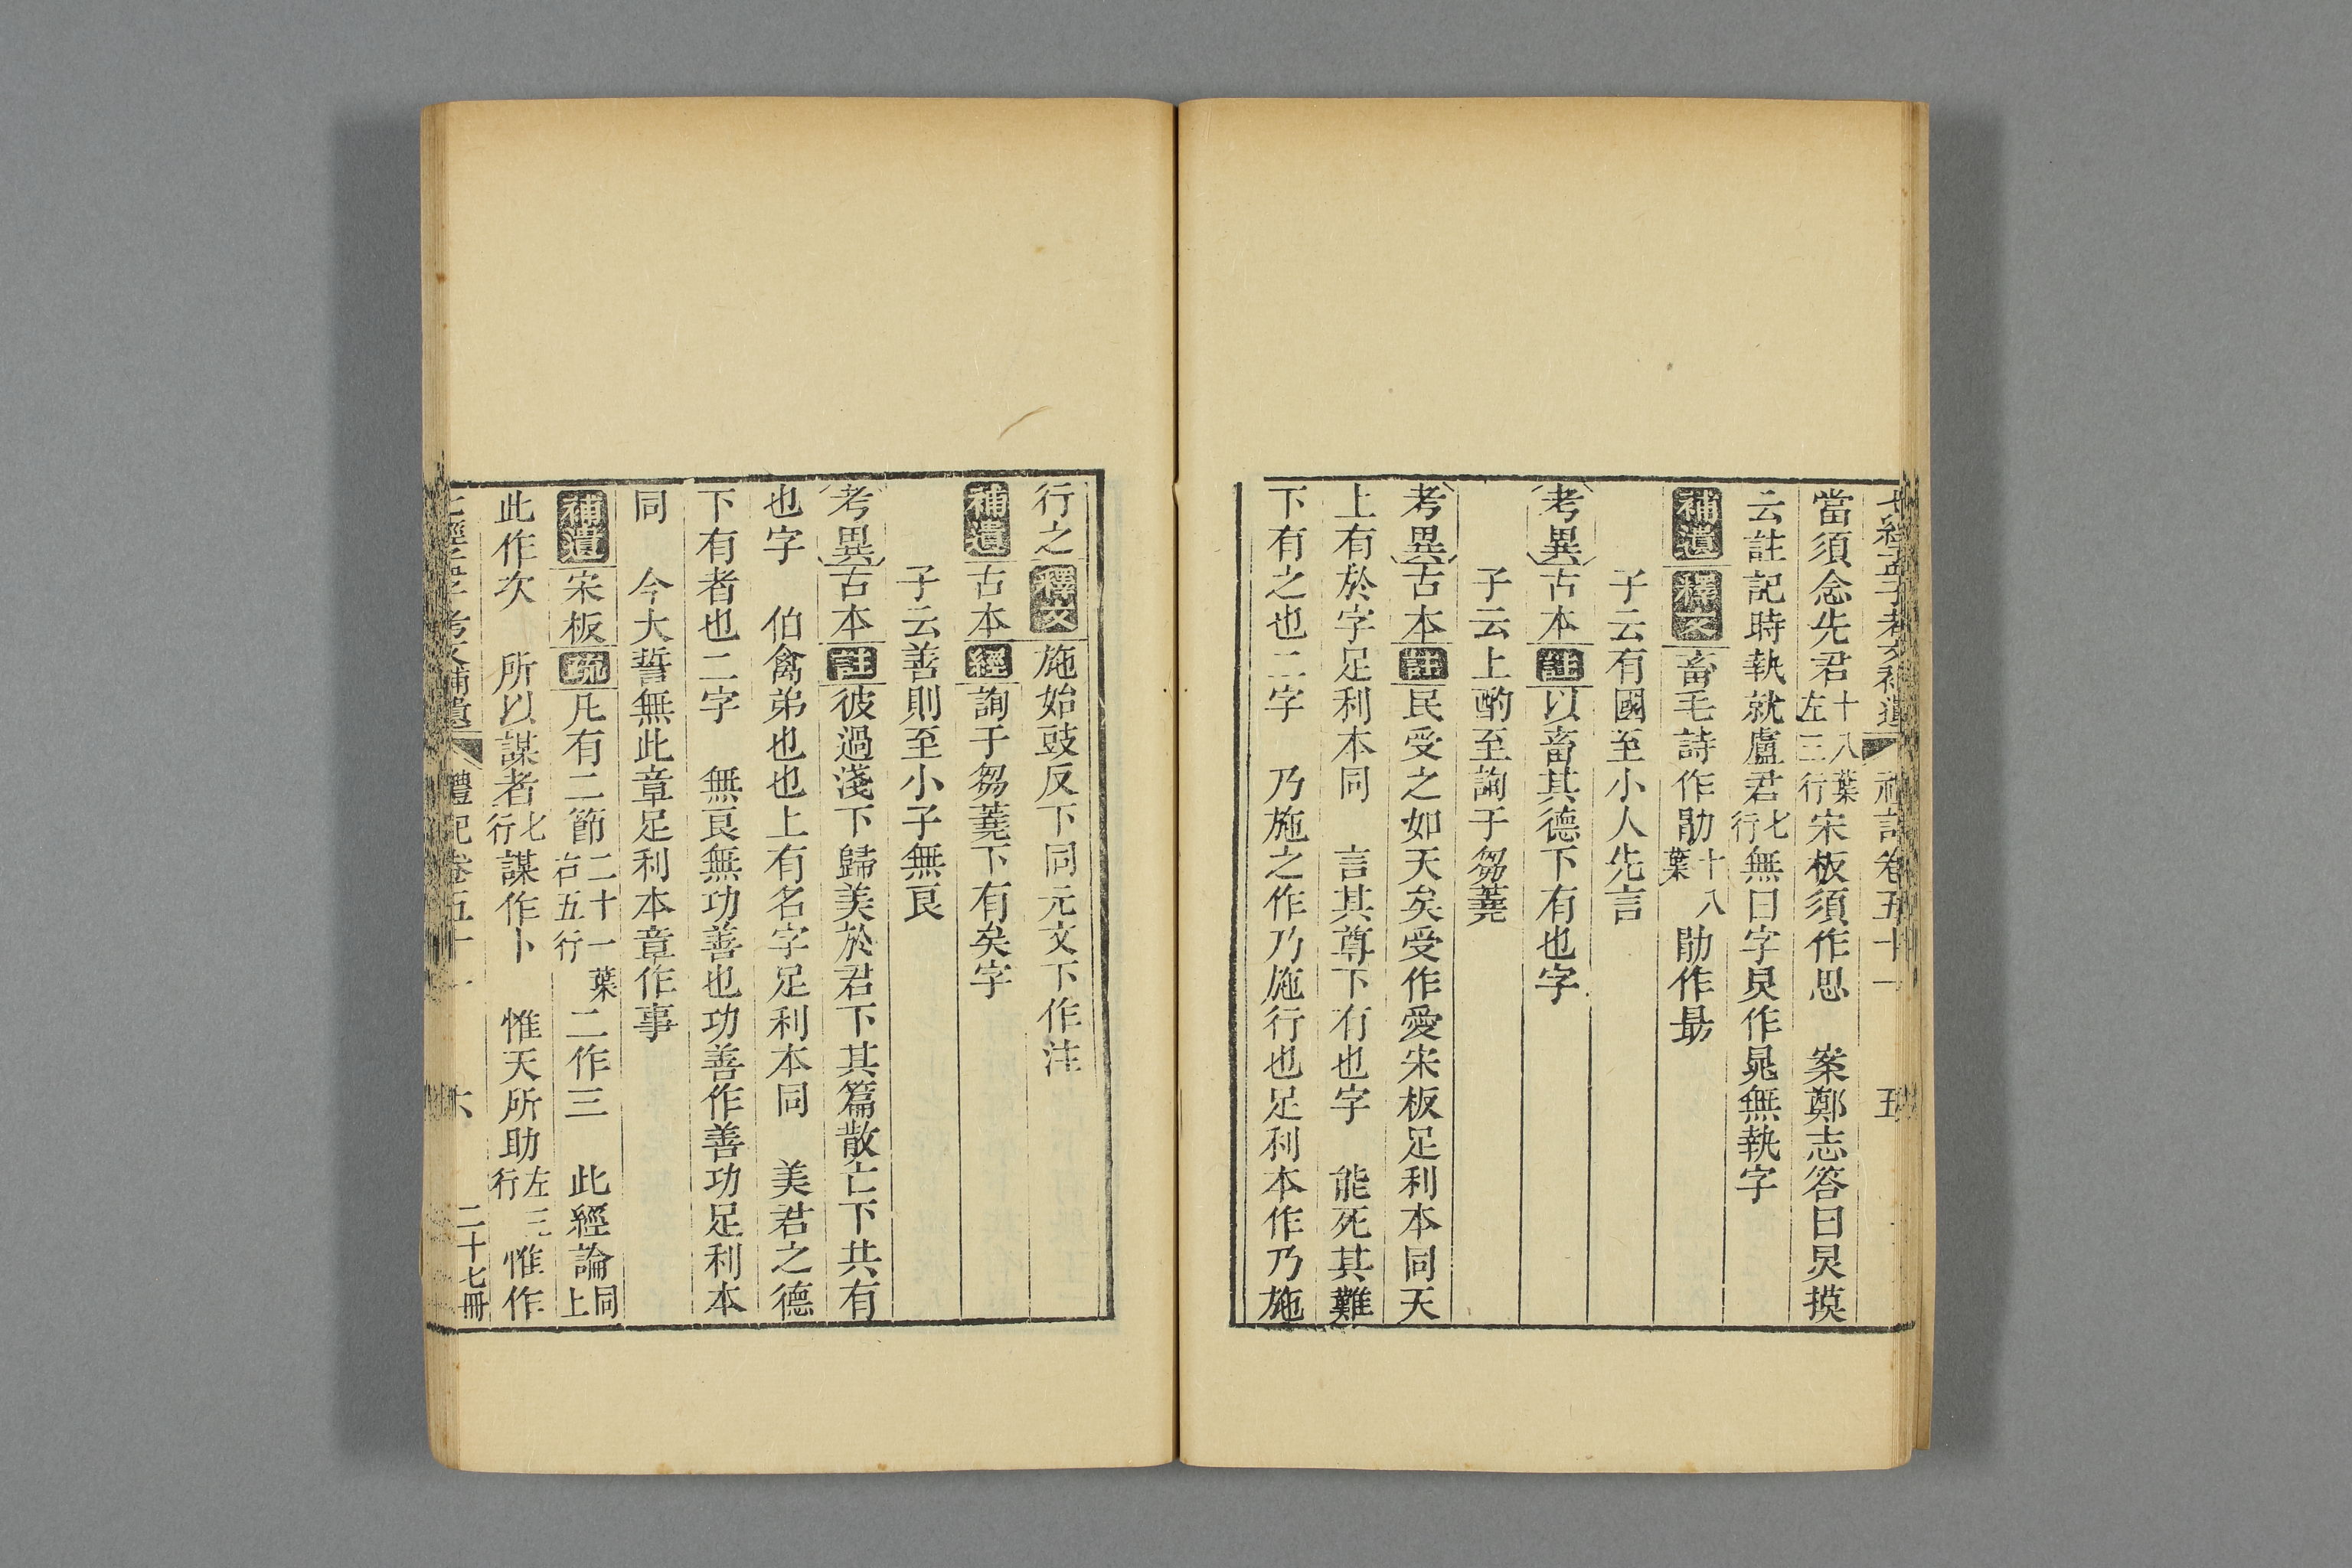 七經孟子考文補遺 禮記卷五十一 五
當須念先君十八葉左三行宋板須作思 案鄭志答曰炅摸
云註記時執就盧君七行無曰字炅作晁無執字
補遺 釋文 畜毛詩作勖十八葉勖作最
子云有國至小人先言
考異 古本 註 以畜其德下有也字
子云上酌至詢于芻蕘
考異 古本 註 民受之如天矣受作愛宋板足利本同天
上有於字足利本同 言其尊下有也字 能死其難
下有之也二字 乃施之作乃施行也足利本作乃施
行之 釋文 施始豉反下同元文下作注
補遺 古本 經 詢于芻蕘下有矣字
子云善則至小子無良
考異 古本 註 彼過淺下歸美於君下其篇散亡下共有
也字 伯禽弟也也上有名字足利本同 美君之德
下有者也二字 無良無功善也功善作善功足利本
同 今大誓無此章足利本章作事
補遺 宋板 疏 凡有二節二十一葉右五行二作三 此經論同上
此作次 所以謀者七行謀作卜 惟天所助左三行惟作
七經孟子考文補遺 禮記卷五十一 六 二十七冊